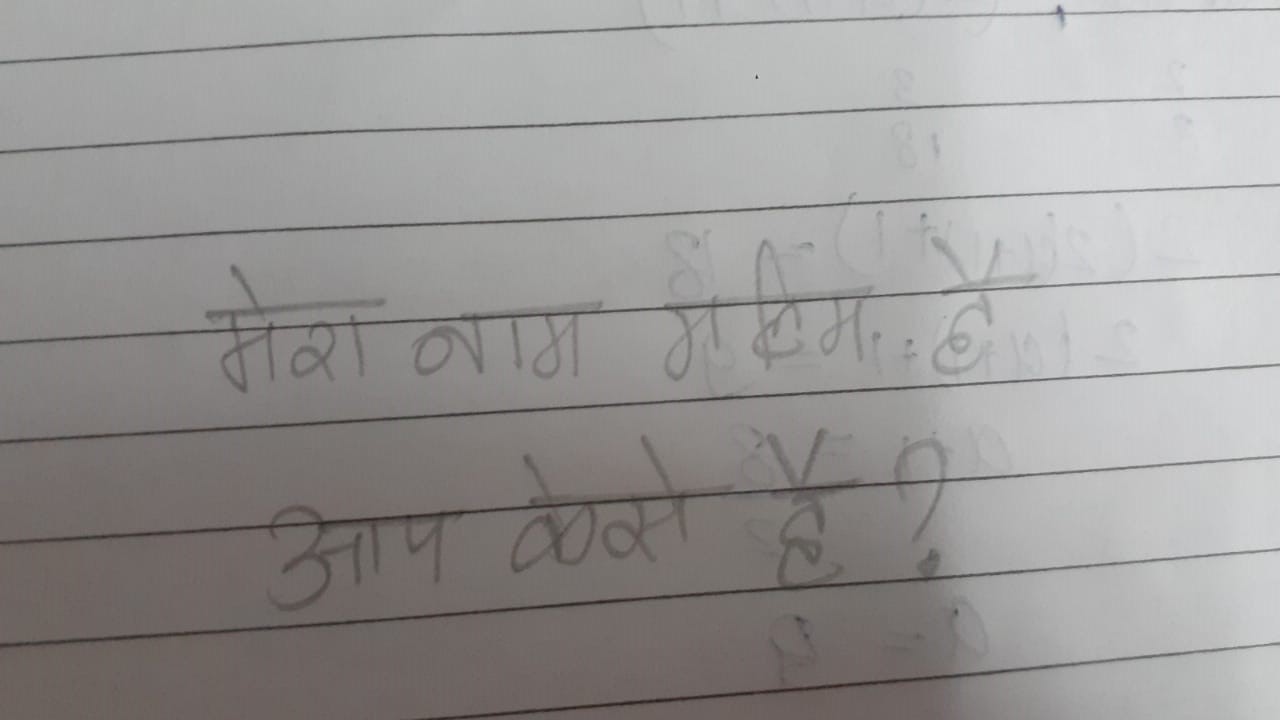 मेरा नाम महिम है
आप केसे है?